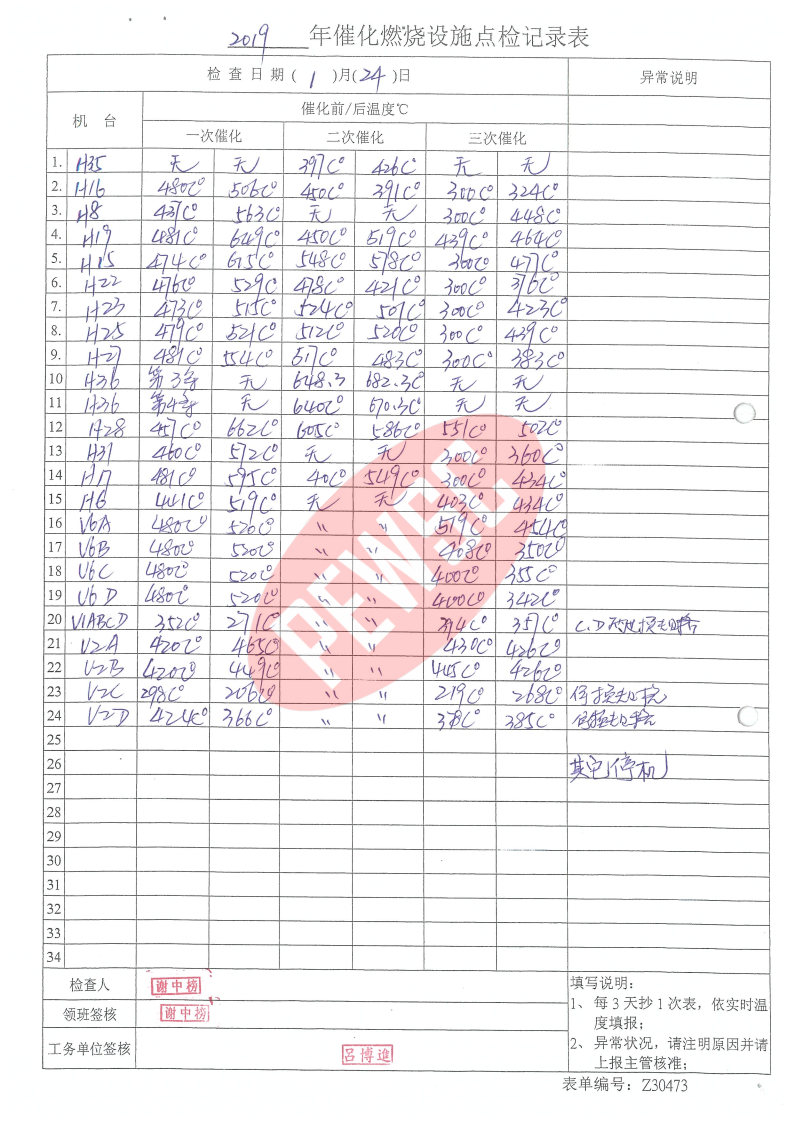 2019 年催化燃烧设施点检记录表
检查日期(1)月(24)日 异常说明
机 台 催化前/后温度℃
一次催化 二次催化 三次催化
1. H35 无 无 397C° 426C° 无 无
2. H16 480C° 506C° 450C° 391C° 300C° 324C°
3. H8 437C° 563C° 无 无 300C° 448C°
4. H19 481C° 649C° 450C° 519C° 439C° 464C°
5. H15 474C° 615C° 548C° 578C° 300C° 477C°
6. H22 476C° 529C° 478C° 421C° 300C° 376C°
7. H23 473C° 515C° 524C° 501C° 300C° 423C°
8. H25 479C° 521C° 512C° 520C° 300C° 439C°
9. H27 481C° 554C° 517C° 483C° 300C° 383C°
10 H36 第3 无 648.3 682.3C° 无 无
11 H36 第4 无 640C° 670.3C° 无 无
12 H28 457C° 662C° 605C° 586C° 551C° 502C°
13 H31 460C° 572C° 无 无 300C° 360C°
14 H17 481C° 595C° 40C° 549C° 300C° 434C°
15 H6 441C° 519C° 无 无 403C° 434C°
16 V6A 480C° 520C° 〃 〃 519C° 454C°
17 V6B 480C° 520C° 〃 〃 408C° 350C°
18 V6C 480C° 520C° 〃 〃 400C° 355C°
19 V6D 480C° 520C° 〃 〃 400C° 342C°
20 V1ABCD 352C° 271C° 〃 〃 394C° 357C° C.D
21 V2A 420C° 465C° 〃 〃 430C° 426C°
22 V2B 420C° 449C° 〃 〃 445C° 426C°
23 V2C 298C° 206C° 〃 〃 219C° 268C°
24 V2D 424C° 366C° 〃 〃 378C° 385C°
25
26 其它停机
27
28
29
30
31
32
33
34
PEWSC
检查人 谢中榜
领班签核 谢中榜
工务单位签核 吕博進
填写说明:
1、每3天抄1次表，依实时温
度填报;
2、异常状况，请注明原因并请
上报主管核准;
表单编号：Z30473